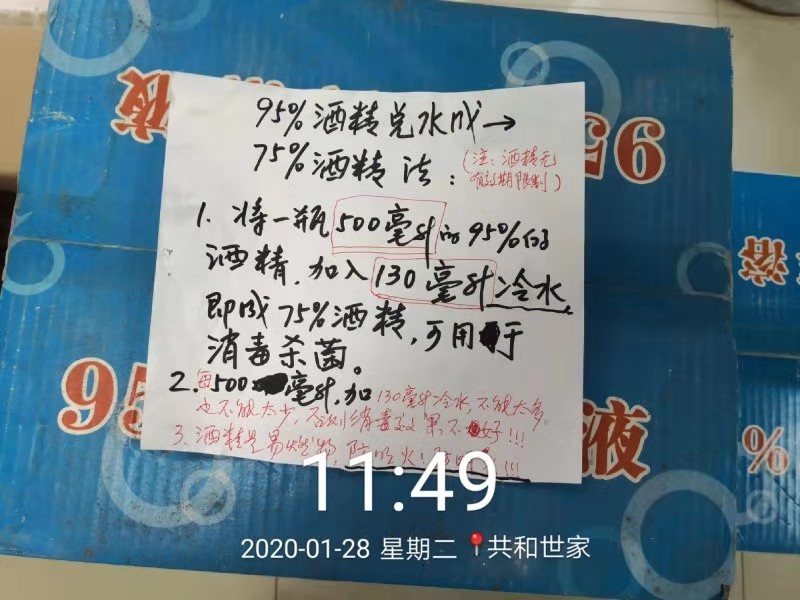 95%酒精兑水成→
75%酒精法:
(注:酒精无
有效期限制)
1. 将一瓶500毫升的95%的
酒精,加入130毫升冷水
即成75%酒精,可用于
消毒杀菌。
2. 每500毫升,加130毫升冷水,不能太多
也不能太少,否则消毒效果不好!!!
3. 酒精是易燃物,防明火!
955
95
液
液
溶
%
11:49
2020-01-28 星期二 共和世家